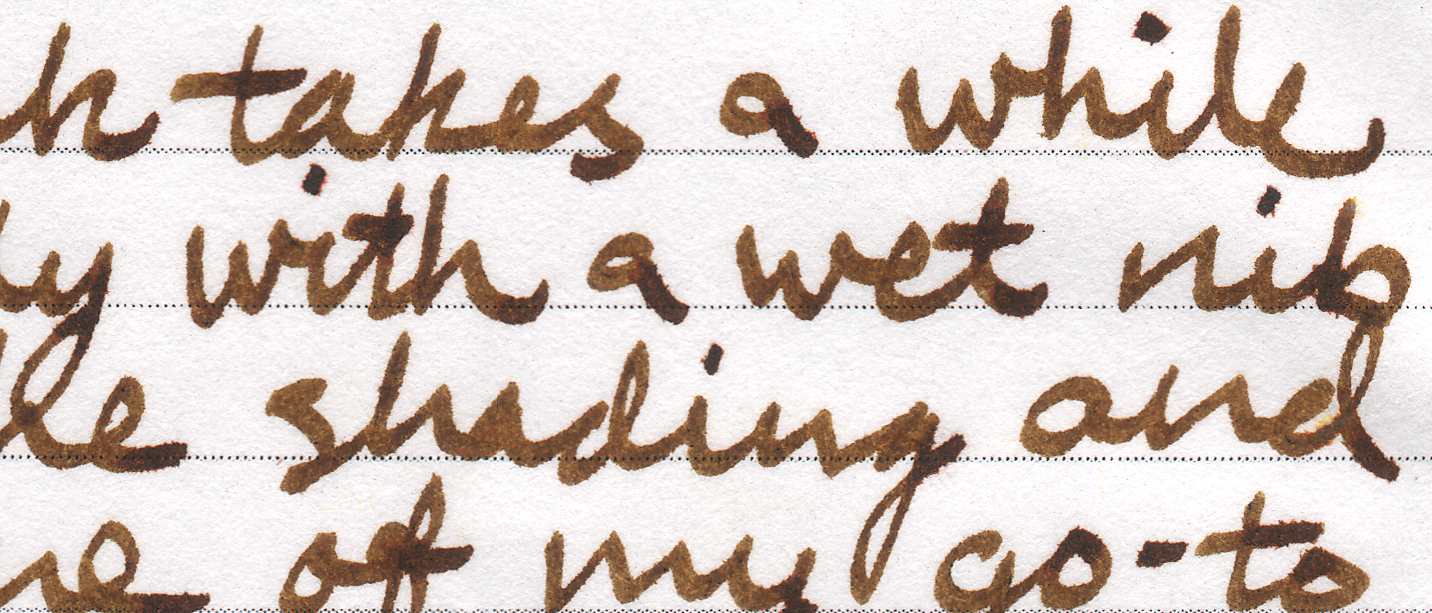 takes a while
with a wet nib
shading and
of my go-to